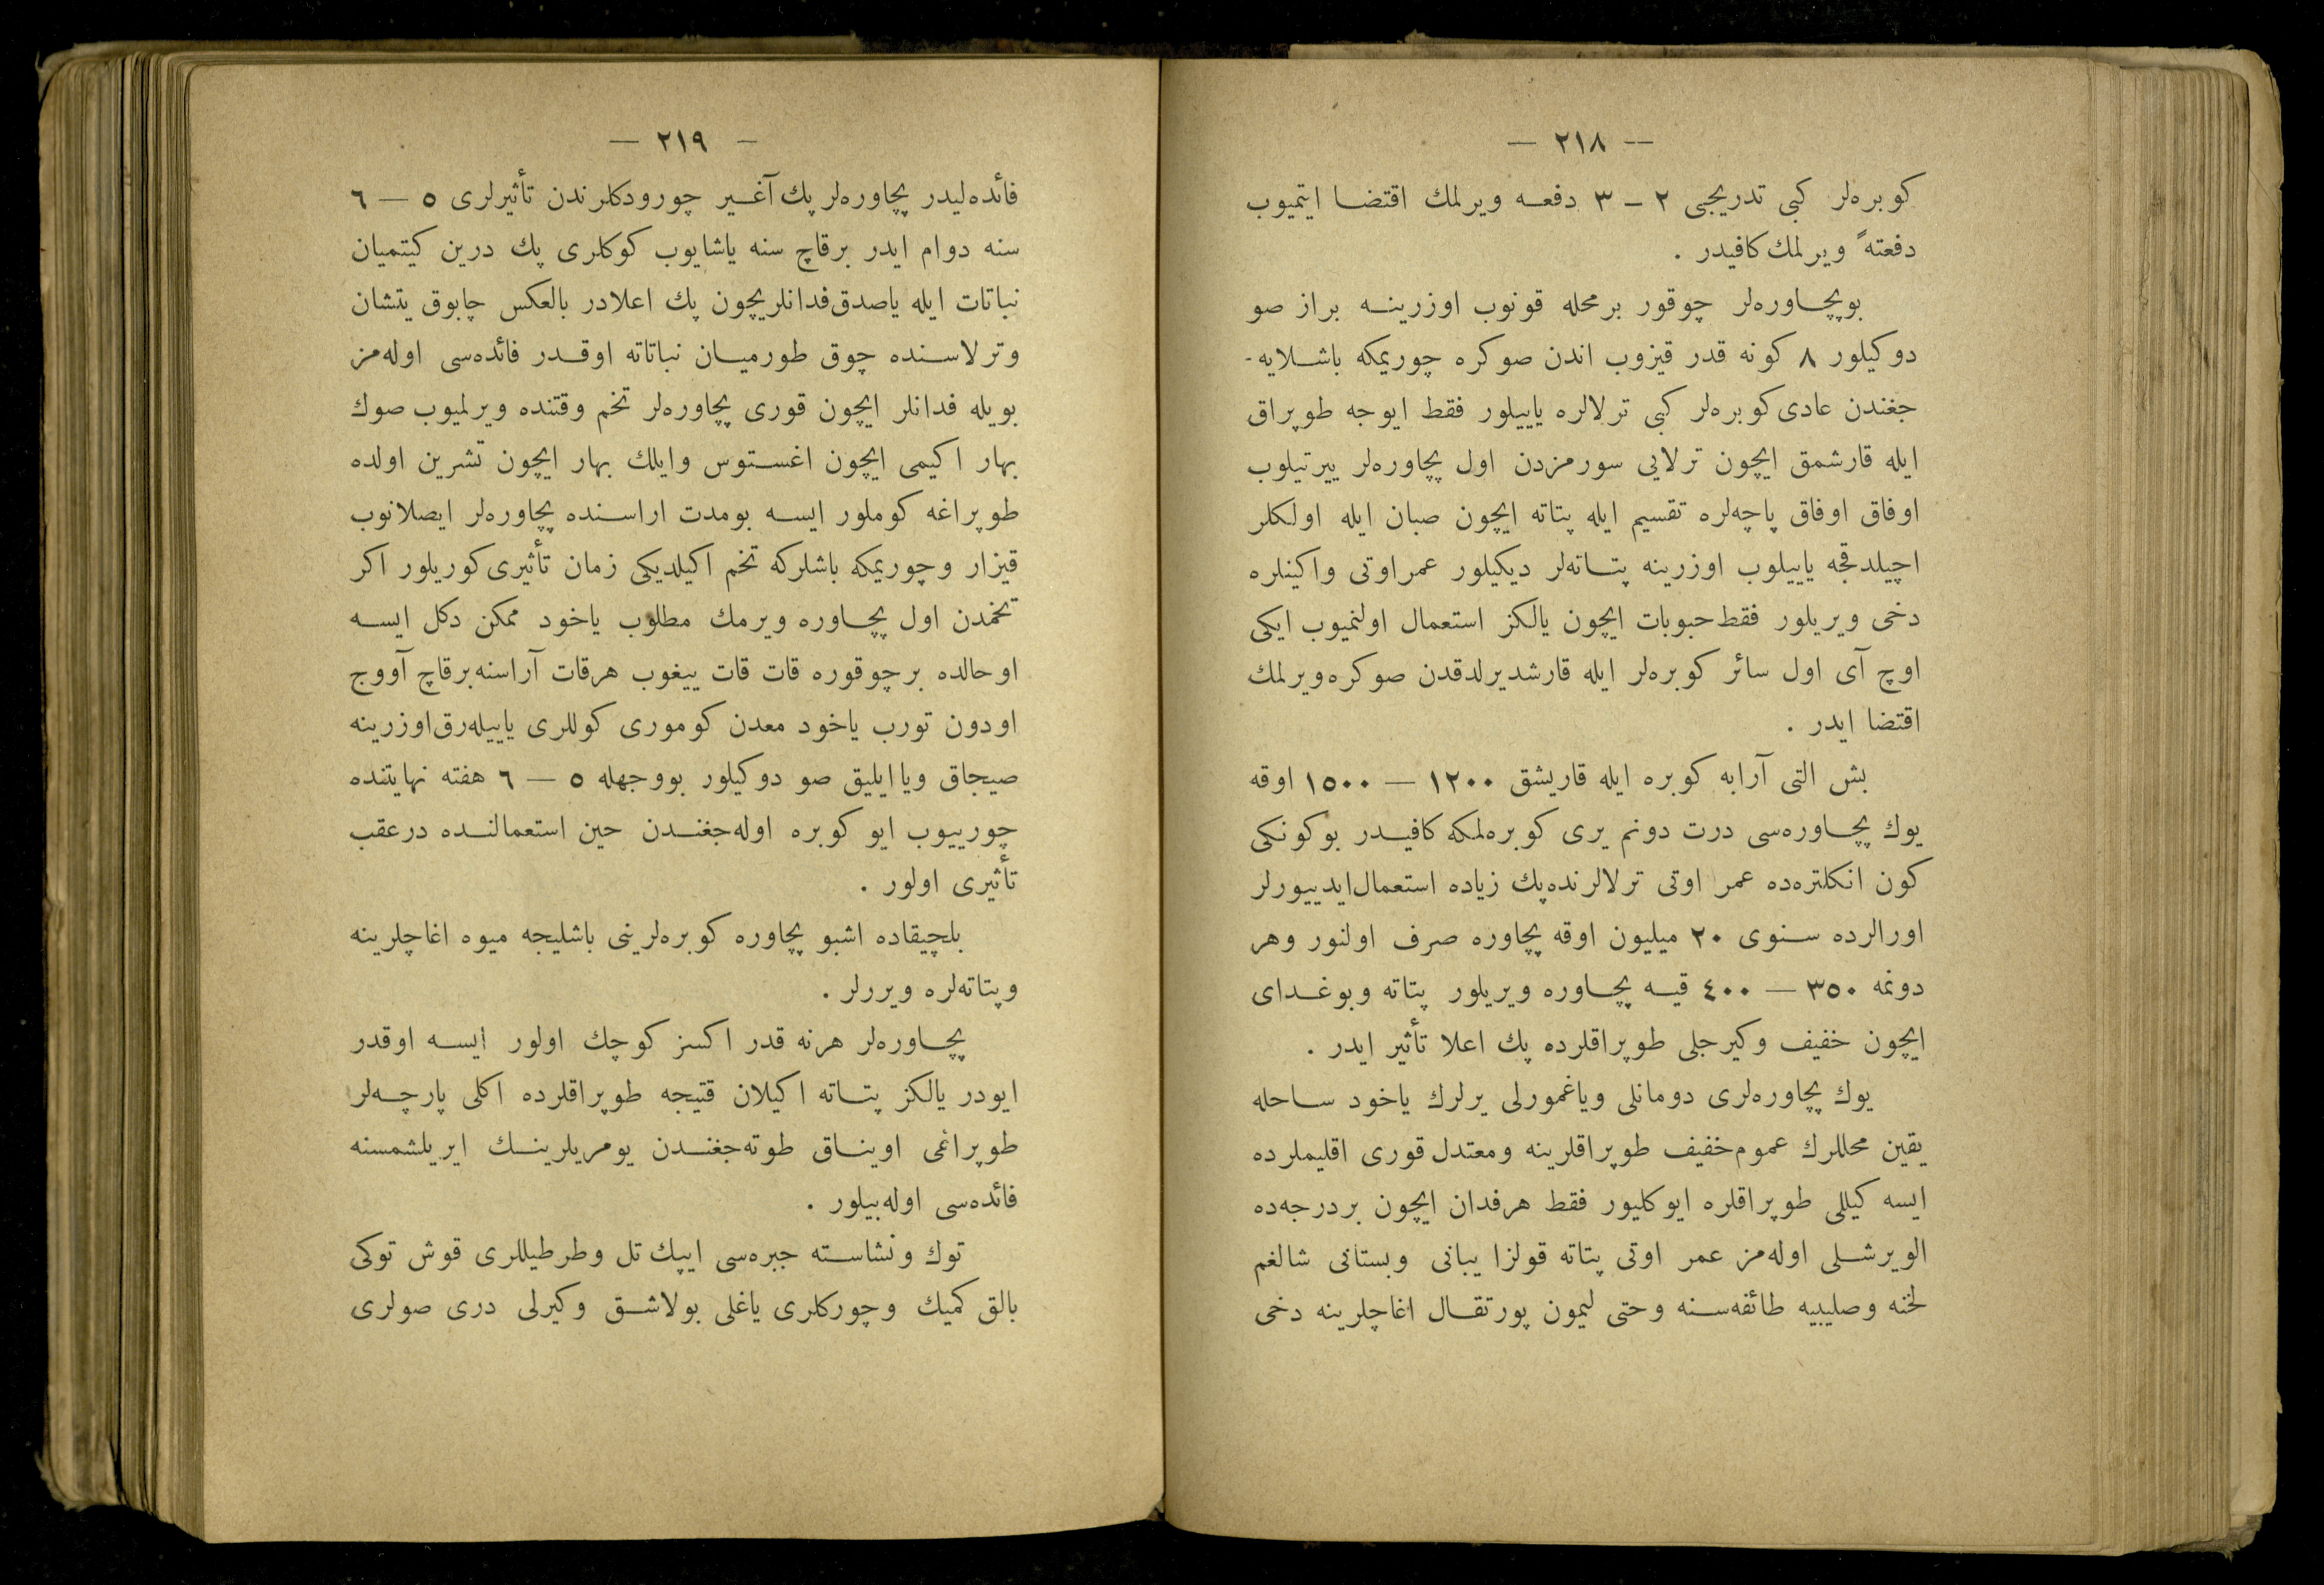 — ٢١٨ —
كوبره‌لر كبى تدريجبى ٢ – ٣ دفعه ويرلمك اقتضا ايتميوب
دفعتهً ويرلمك كافيدر .
بوپچاوره‌لر چوقور برمحله قونوب اوزرينه براز صو
دوكيلور ٨ كونه قدر قيزوب اندن صوكره چوريمكه باشلايه-
جغندن عادى كوبره‌لر كبى ترلالره ياييلور فقط ايوجه طوپراق
ايله قارشمق ايچون ترلايى سورمزدن اول پچاوره‌لر ييرتيلوب
اوفاق اوفاق پاچه‌لره تقسيم ايله پتاته ايچون صبان ايله اولكلر
اچيلدقجه ياييلوب اوزرينه پتاته‌لر ديكيلور عمراوتى واكينلره
دخى ويريلور فقط حبوبات ايچون يالكز استعمال اولنميوب ايكى
اوچ آى اول سائر كوبره‌لر ايله قارشديرلدقدن صوكره ويرلمك
اقتضا ايدر .
بش التى آرابه كوبره ايله قاريشق ١٢٠٠ — ١٥٠٠ اوقه
يوك پچاوره‌سى درت دونم يرى كوبره‌لمكه كافيدر بوكونكى
كون انكلتره‌ده عمر اوتى ترلالرنده پك زياده استعمال ايدييورلر
اورالرده سنوى ٢٠ ميليون اوقه پچاوره صرف اولنور وهر
دونمه ٣٥٠ — ٤٠٠ قيه پچاوره ويريلور پتاته وبوغداى
ايچون خفيف وكيرجلى طوپراقلرده پك اعلا تأثير ايدر .
يوك پچاوره‌لرى دومانلى وياغمورلى يرلرك ياخود ساحله
يقين محللرك عموم خفيف طوپراقلرينه ومعتدل قورى اقليملرده
ايسه كيللى طوپراقلره ايوكليور فقط هرفدان ايچون بردرجه‌ده
الويرشلى اوله‌مز عمر اوتى پتاته قولزا يبانى وبستانى شالغم
لخنه وصليبيه طائفه‌سنه وحتى ليمون پورتقال اغاچلرينه دخى
— ٢١٩ —
فائده‌ليدر پچاوره‌لر پك آغير چورودكلرندن تأثيرلرى ٥ — ٦
سنه دوام ايدر برقاچ سنه ياشايوب كوكلرى پك درين كيتميان
نباتات ايله ياصدق فدانلريچون پك اعلادر بالعكس چابوق يتشان
وترلاسنده چوق طورميان نباتاته اوقدر فائده‌سى اوله‌مز
بويله فدانلر ايچون قورى پچاوره‌لر تخم وقتنده ويرلميوب صوك
بهار اكيمى ايچون اغستوس وايلك بهار ايچون تشرين اولده
طوپراغه كوملور ايسه بومدت اراسنده پچاوره‌لر ايصلانوب
قيزار وچوريمكه باشلركه تخم اكيلديكى زمان تأثيرى كوريلور اكر
تخمدن اول پچاوره ويرمك مطلوب ياخود ممكن دكل ايسه
اوحالده برچوقوره قات قات ييغوب هرقات آراسنه برقاچ آووج
اودون تورب ياخود معدن كومورى كوللرى ياييله‌رق اوزرينه
صيجاق ويا ايليق صو دوكيلور بووجهله ٥ — ٦ هفته نهايتنده
چورييوب ايو كوبره اوله‌جغندن حين استعمالنده درعقب
تأثيرى اولور .
بلچيقاده اشبو پچاوره كوبره‌لرينى باشليجه ميوه اغاچلرينه
وپتاته‌لره ويررلر .
پچاوره‌لر هرنه قدر اكسز كوچك اولور ايسه اوقدر
ايودر يالكز پتاته اكيلان قتيجه طوپراقلرده اكلى پارچه‌لر
طوپراغى اويناق طوته‌جغندن يومريلرينك ايريلشمسنه
فائده‌سى اوله‌بيلور .
توك ونشاسته جبره‌سى ايپك تل وطرطيللرى قوش توكى
بالق كميك وچوركلرى ياغلى بولاشق وكيرلى درى صولرى